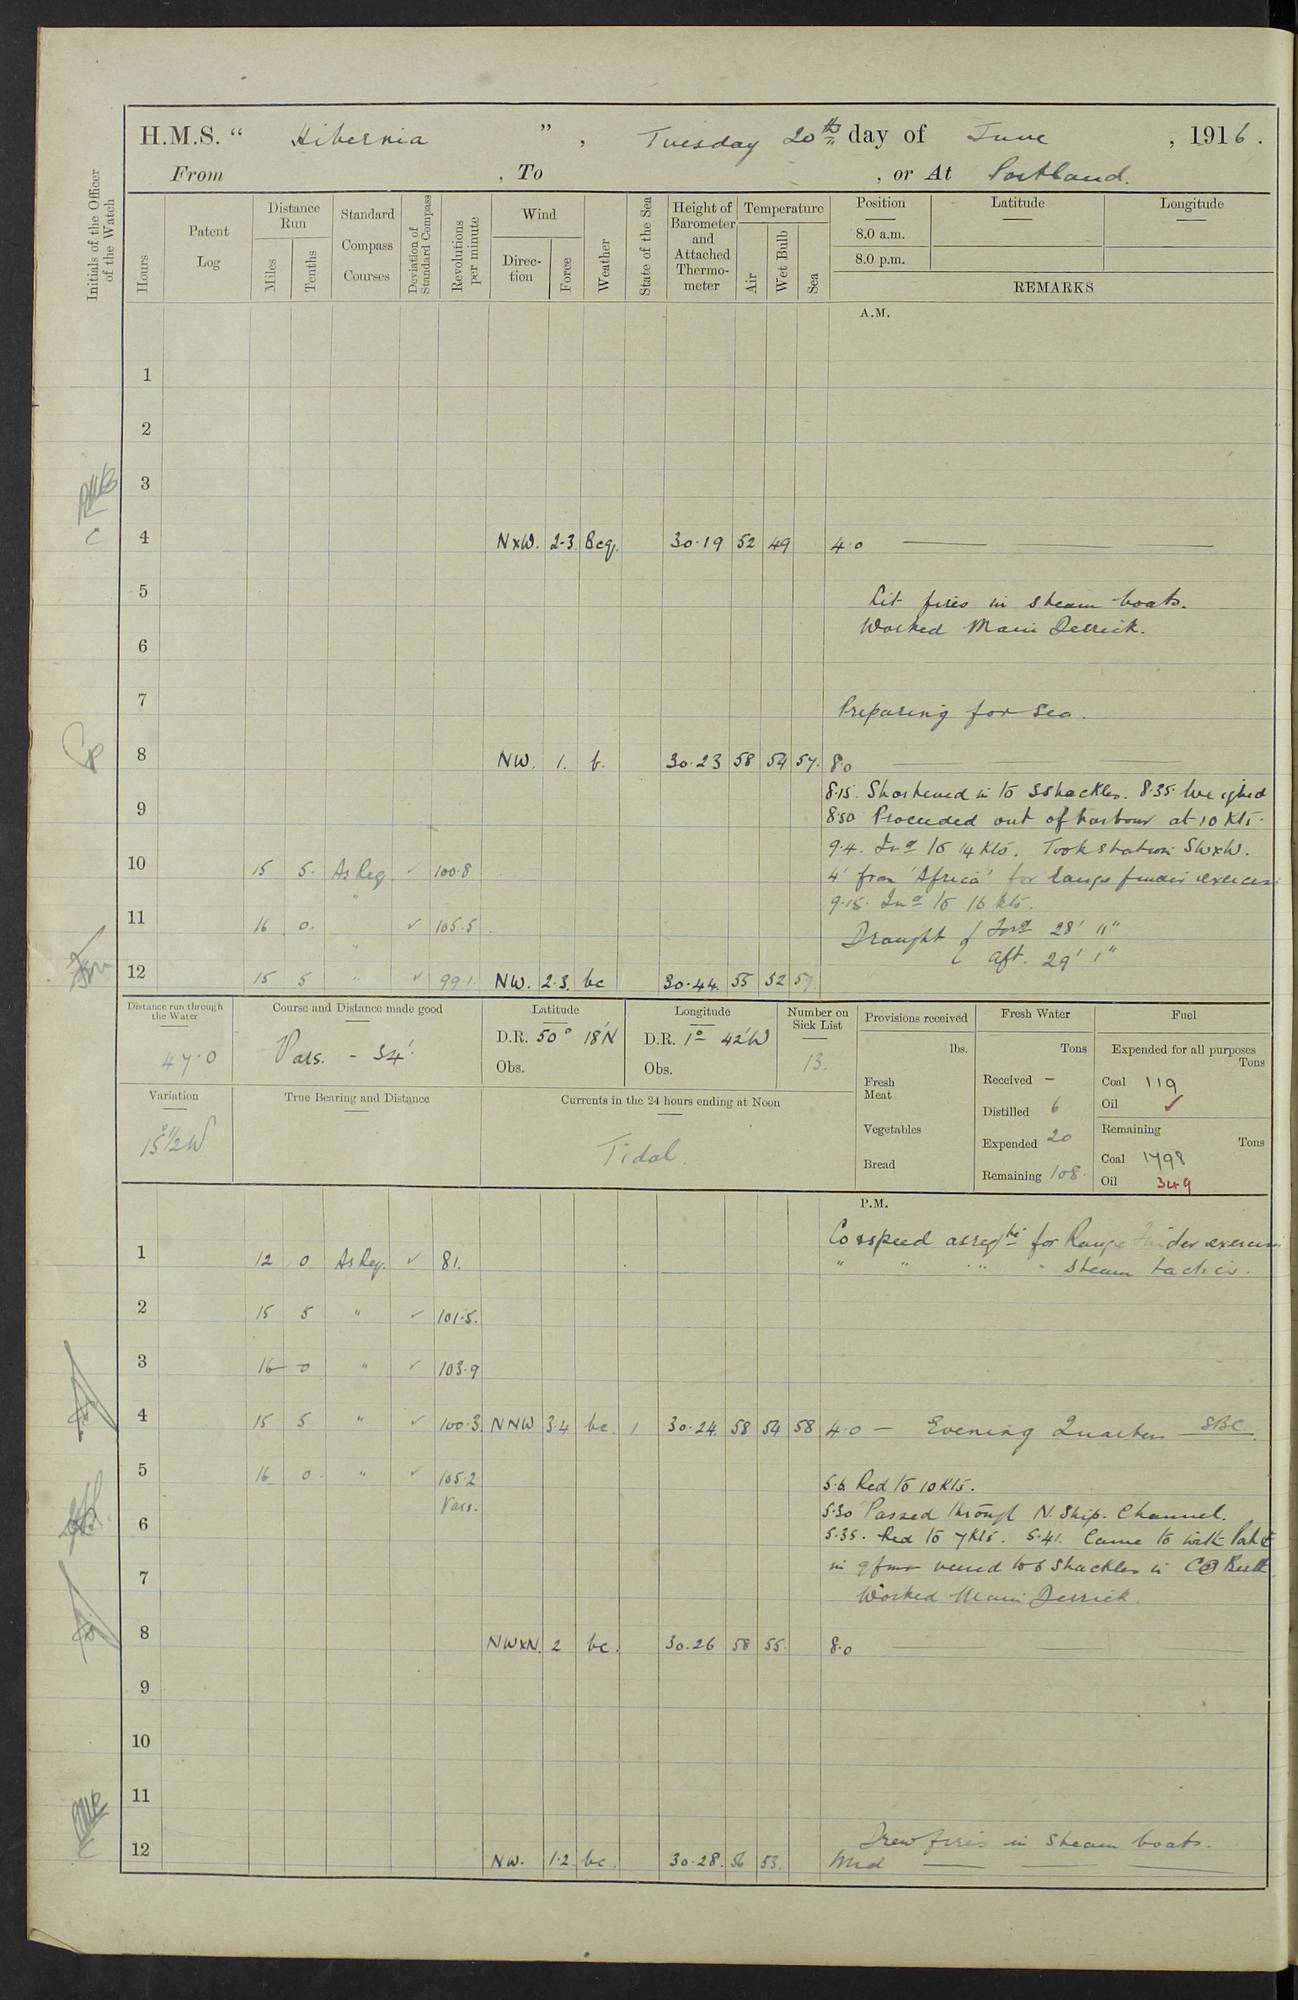 H.M.S. “ Hibernia ” , Tuesday 20th day of June , 1916 .
From , To , or At Portland.
Initials of the Officer of the Watch
Hours
Patent Log
Distance Run
Miles
Tenths
Standard Compass Courses
Deviation of Standard Compass
Revolutions per minute
Wind
Direction
Force
Weather
State of the Sea
Height of Barometer and Attached Thermometer
Temperature
Air
Wet Bulb
Sea
Position
8.0 a.m.
8.0 p.m.
Latitude
Longitude
REMARKS
A.M.
1
2
3
4 NxW. 2-3 Bcq. 30.19 52 49 4.0
5 Lit fires in steam boats.
Worked Main Derrick.
6
7 Preparing for sea.
8 NW. 1. b. 30.23 58 54 57. 8.0
8.15. Shortened in to 3 shackles. 8.35 Weighed
9 8.50 Proceeded out of harbour at 10 Kts.
9.4. Incd to 14 Kts. Took station SWxW.
10 15 5. As Req. ✓ 100.8 4' from 'Africa' for range finder exercise
9.15. Incd to 16 kts.
11 16 0. " ✓ 105.5 Draught { Ford 28' 11"
Aft. 29' 1"
12 15 5 " ✓ 99.1. NW. 2.3. bc 30.44. 55 52 57.
Distance run through the Water
47.0
Course and Distance made good
Vars. - 34'.
Latitude
D.R. 50° 18'N
Obs.
Longitude
D.R. 1° 42'W
Obs.
Number on Sick List
13.
Provisions received
lbs.
Fresh Meat
Vegetables
Bread
Fresh Water
Tons
Received -
Distilled 6
Expended 20
Remaining 108.
Fuel
Expended for all purposes
Tons
Coal 119
Oil ✓
Remaining
Tons
Coal 1798
Oil 349
Variation
15°1/2W
True Bearing and Distance
Currents in the 24 hours ending at Noon
Tidal.
P.M.
Co & speed as reqte for Range Finder exercise
1 12 0 As Req. ✓ 81. " " " " Steam tactics.
2 15 5 " ✓ 101.5.
3 16 0 " ✓ 103.9
4 15 5 " ✓ 100.3. NNW 3.4 bc. 1 30.24. 58 54 58 4.0 — Evening Quarters — SBC.
5 16 0. " ✓ 105.2 5.6 Red to 10 Kts.
Vars. 5.30 Passed through N. Ship. Channel.
6 5.35. Red to 7 Kts. 5.41. Came to with Port
7 in 9 fms veered to 6 shackles in C
Worked Main Derrick.
8 NWxN. 2 bc. 30.26 58 55. 8.0
9
10
11
Drew fires in steam boats.
12 NW. 1.2 bc. 30.28. 56 53. Mid